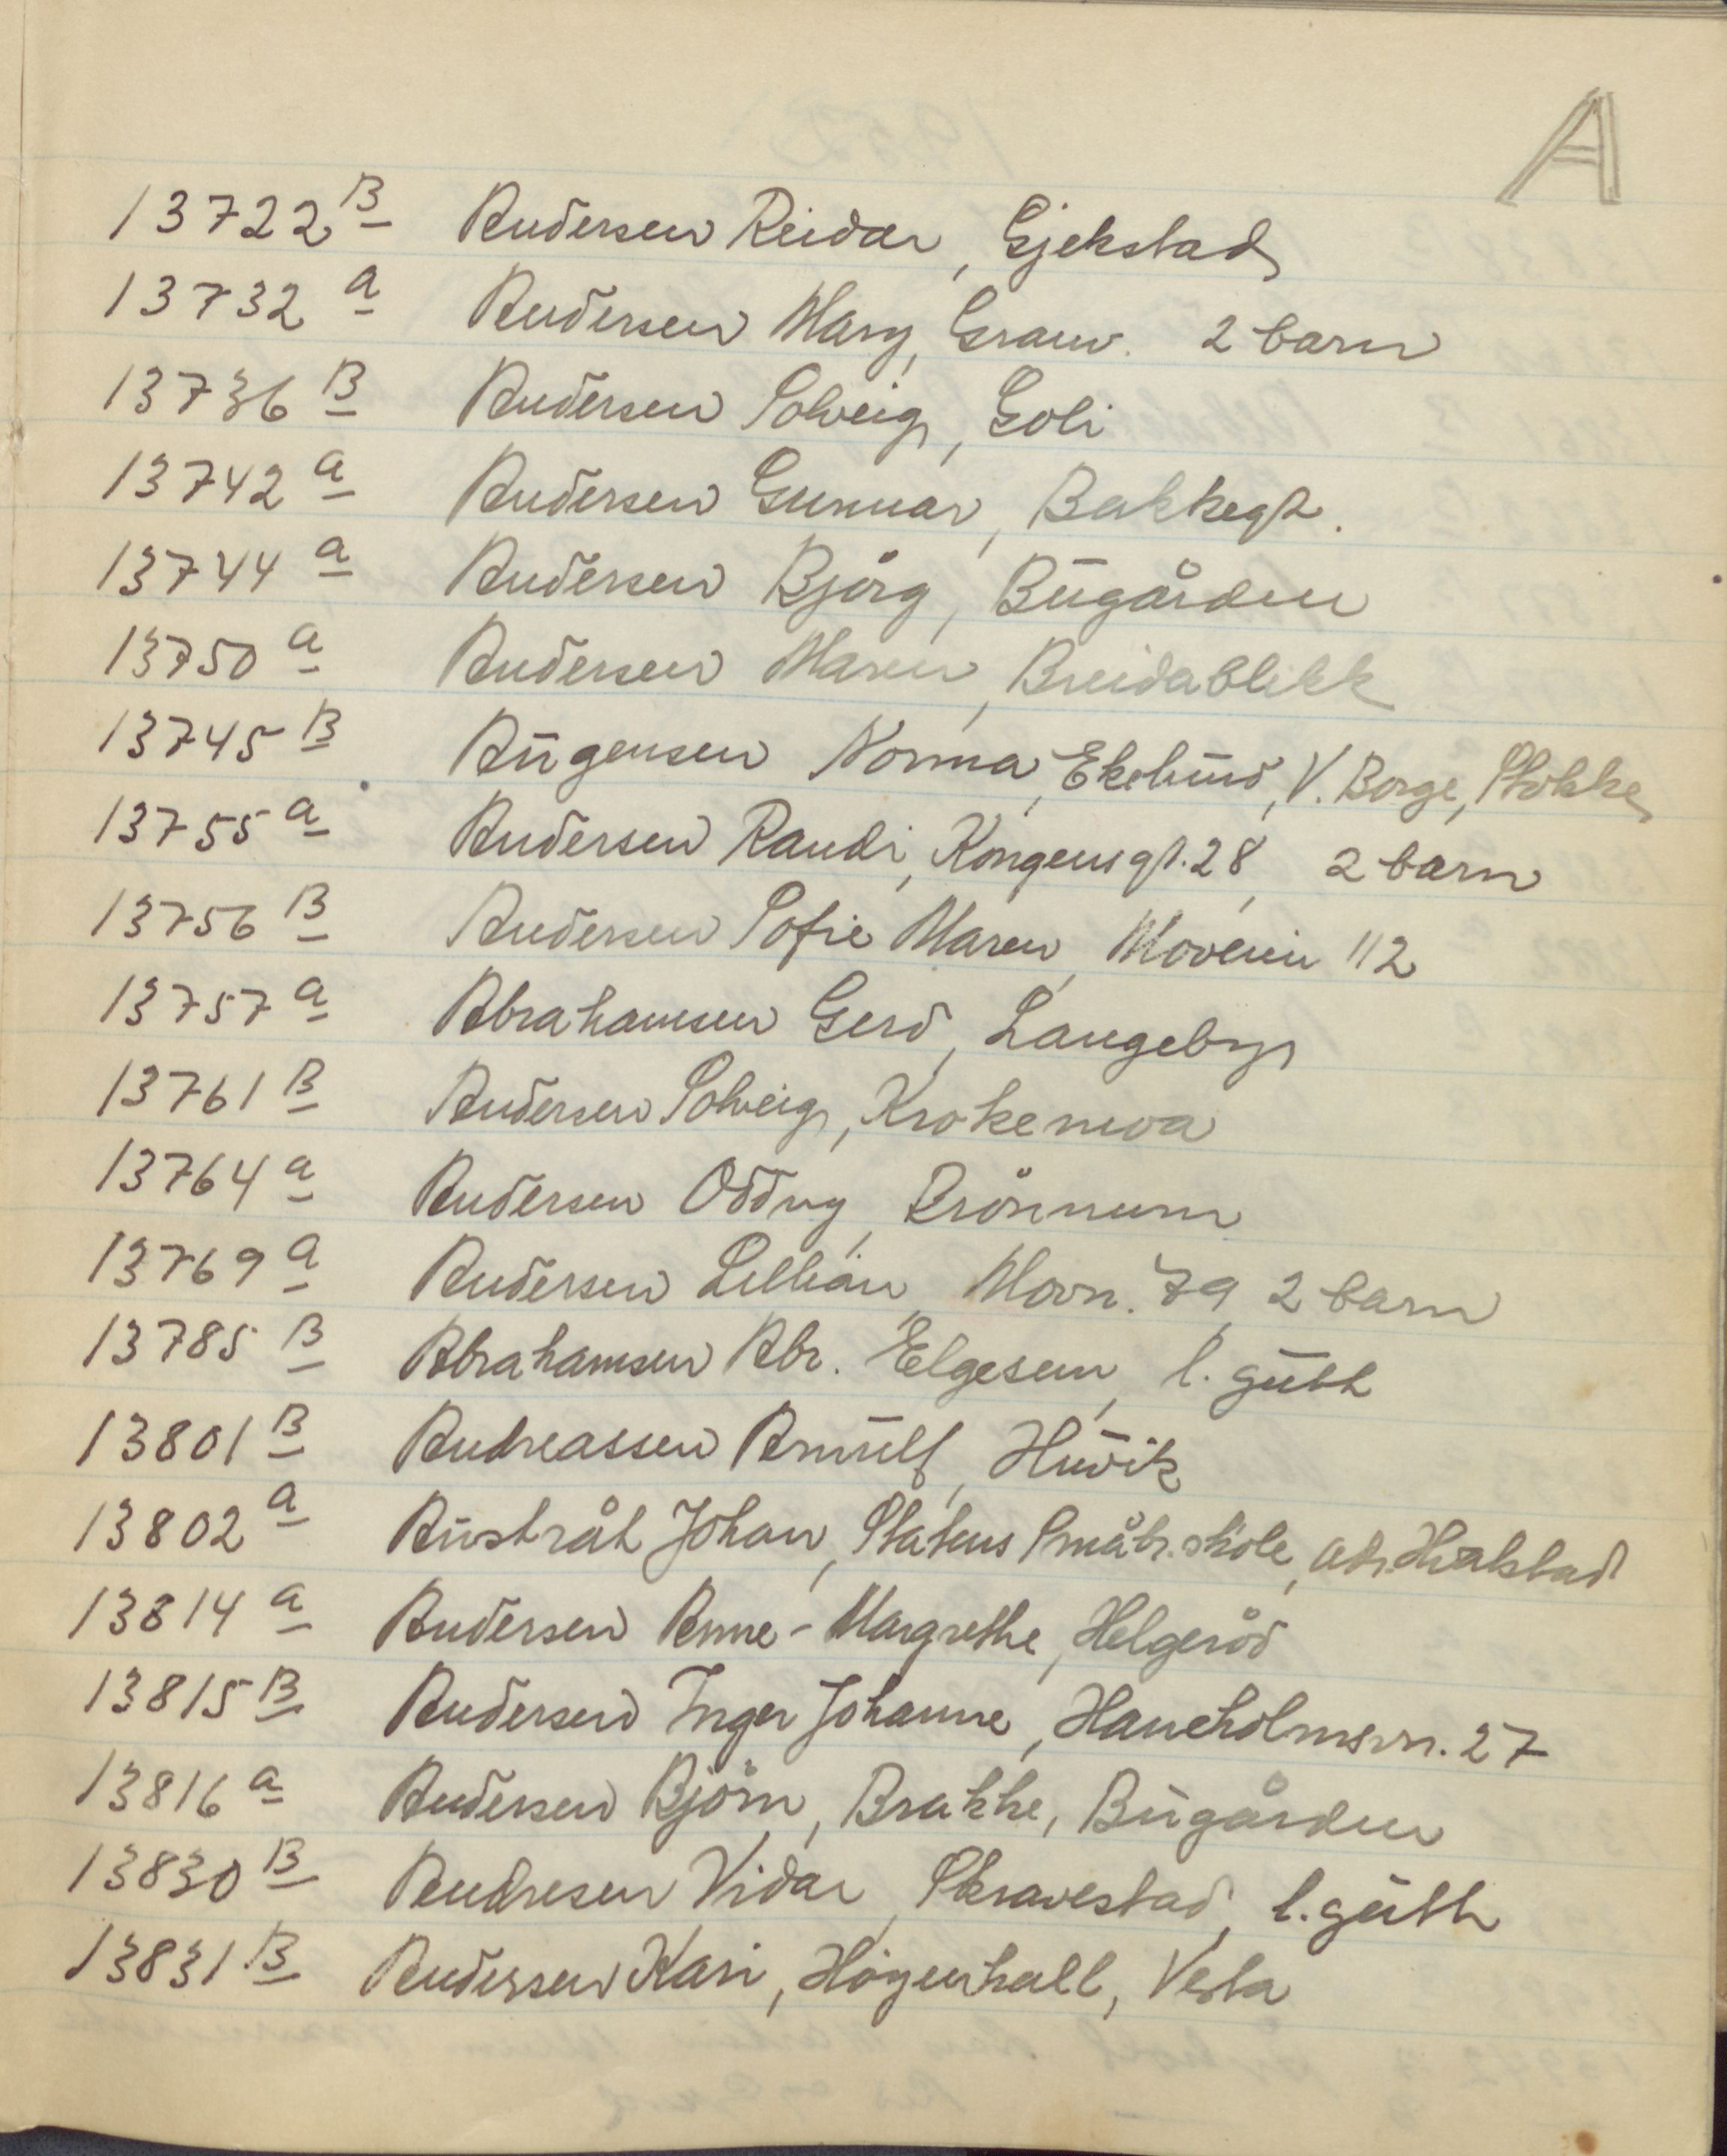 A
13722 B Andersen Reidar, Gjekstad
13732 a Andersen Mary, Granv. 2 barn
13736 B Andersen Solveig, Goli
13742 a Andersen Gunnar, Bakkegt.
13744 a Andersen Bjørg, Bugården
13750 a Andersen Maren, Breidablikk
13745 B Augensen Norma, Ekelund, V. Borge, Stokke
13755 a Andersen Randi, Kongensgt. 28, 2 barn
13756 B Andersen Sofie Maren, Moveien 112
13757 a Abrahamsen Gerd, Langeby
13761 B Andersen Solveig, Krokemoa
13764 a Andersen Oddny, Brønnum
13769 a Andersen Lillian, Movn. 79, 2 barn
13785 B Abrahamsen Abr. Elgesem, l. gutt
13801 B Andreassen Arnulf, Huvik
13802 a Austråt Johan, Statens Småbr. skole, adr. Hvalstad
13814 a Andersen Anne-Margrethe, Helgerød
13815 B Andersen Inger Johanne, Haneholmsvn. 27
13816 a Andersen Bjørn, Brakke, Bugården
13830 B Andresen Vidar, Skravestad, l. gutt
13831 B Andersen Kari, Høgenhall, Vesta